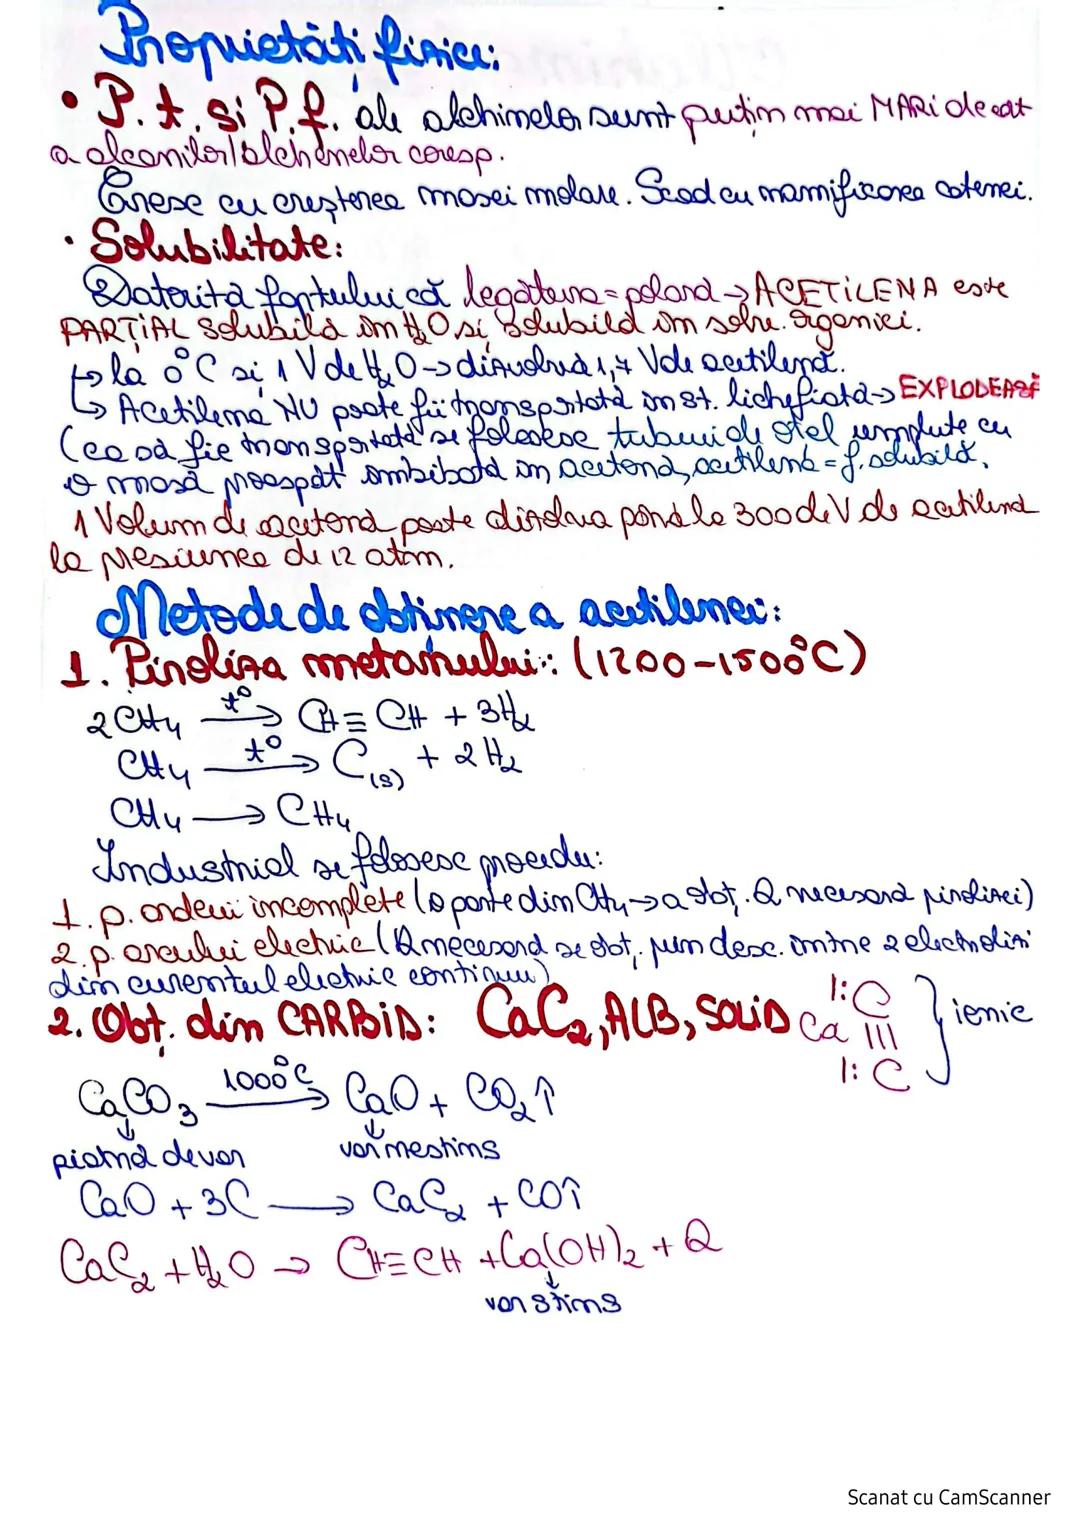 Proprietăți fizice:
• P.t. și P.f. ale alchinelor sunt puțin mai MARi decat
a alcanilor/alchenelor coresp.
Cresc cu creșterea masei molare. Scad cu ramificarea catenei.
• Solubilitate:
Datorită faptului că legătura = polară → ACETiLENA este
PARȚIAL solubilă în H₂O și solubilă în solv. organici.
↳ la 0°C și 1 V de H₂O → dizolvă 1,7 V de acetilenă.
↳ Acetilena NU poate fii transportată în st. lichefiată → EXPLODEAZĂ
(ca să fie transportată se folosesc tuburi de oțel umplute cu
o masă poroasă îmbibată în acetonă, acetilena = f. solubilă.
1 Volum de acetonă poate dizolva până la 300 de V de acetilenă
la presiunea de 12 atm.
Metode de obținere a acetilenei:
1. Piroliza metanului: (1200-1500°C)
2CH₄ t°→ CH≡CH + 3H₂
CH₄ t°→ C(s) + 2H₂
CH₄ → CH₄
Industrial se folosesc procedee:
1. p. arderii incomplete (o parte din CH₄ → a obț. Q necesară pirolizei)
2. p. arcului electric (Q necesară se obț. prin desc. între 2 electrozi
din curentul electric continuu)
2. Obț. din CARBiD: CaC₂, ALB, SOLiD Ca |:C≡|:C } ionic
CaCO₃ 1000°C→ CaO + CO₂↑
piatră de var var nestins
CaO + 3C → CaC₂ + CO↑
CaC₂ + H₂O → CH≡CH + Ca(OH)₂ + Q
var stins
Scanat cu CamScanner